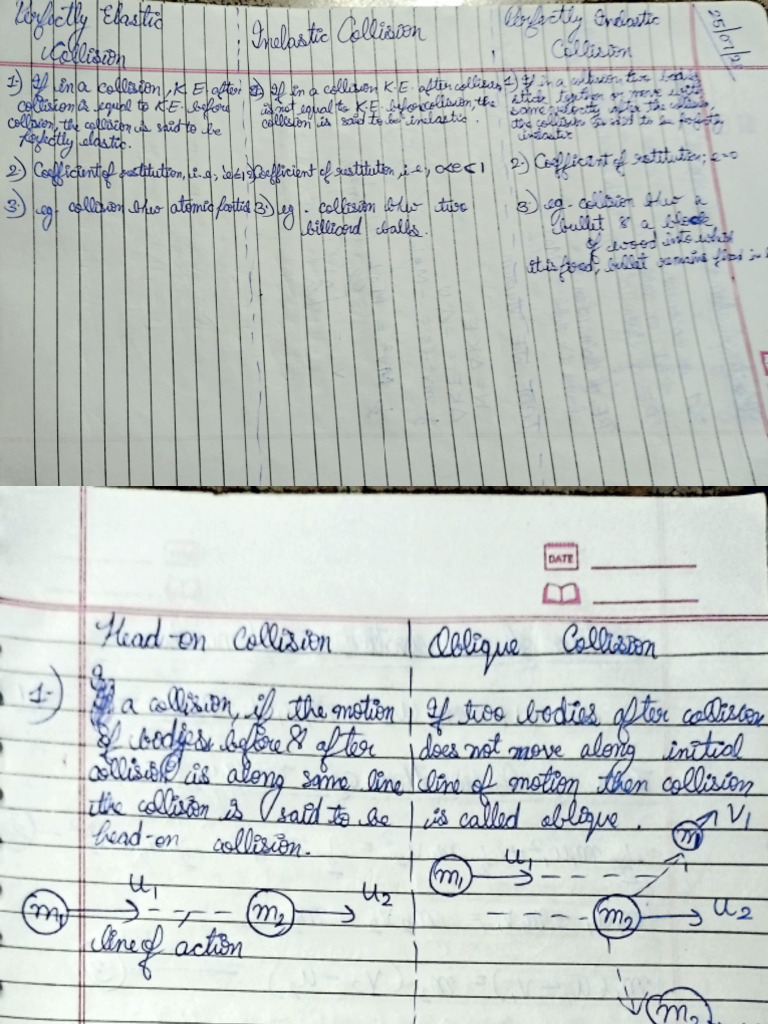 Perfectly Elastic
Collision
1) If in a collision, K.E. after
collision is equal to K.E. before
collision, the collision is said to be
perfectly elastic.
2) Coefficient of restitution, i.e,
3) eg. collision b/w atomic
Inelastic Collision
If in a collision K.E. after collision
is not equal to K.E. before collision, the
collision is said to be inelastic.
Coefficient of restitution, i.e, 0<e<1
3) eg. collision b/w two
billicard balls.
25/07/2
Perfectly Inelastic
Collision
1) If in a collision two bodies
stick together or move with
same velocity after the collision,
the collision is said to be perfectly
inelastic
2) Coefficient of restitution; e=0
3) eg. collision b/w a
bullet & a block
of wood into which
it is fired, bullet remains fixed in
DATE
Head-on Collision
1.)
a collision, if the motion
of bodies before & after
collision is along same line
the collision is said to be
head-on collision.
m1 u1 m2 u2
line of action
Oblique Collision
If two bodies after collision
does not move along initial
line of motion then collision
is called oblique.
m1 u1 m V1
m2 u2
m2